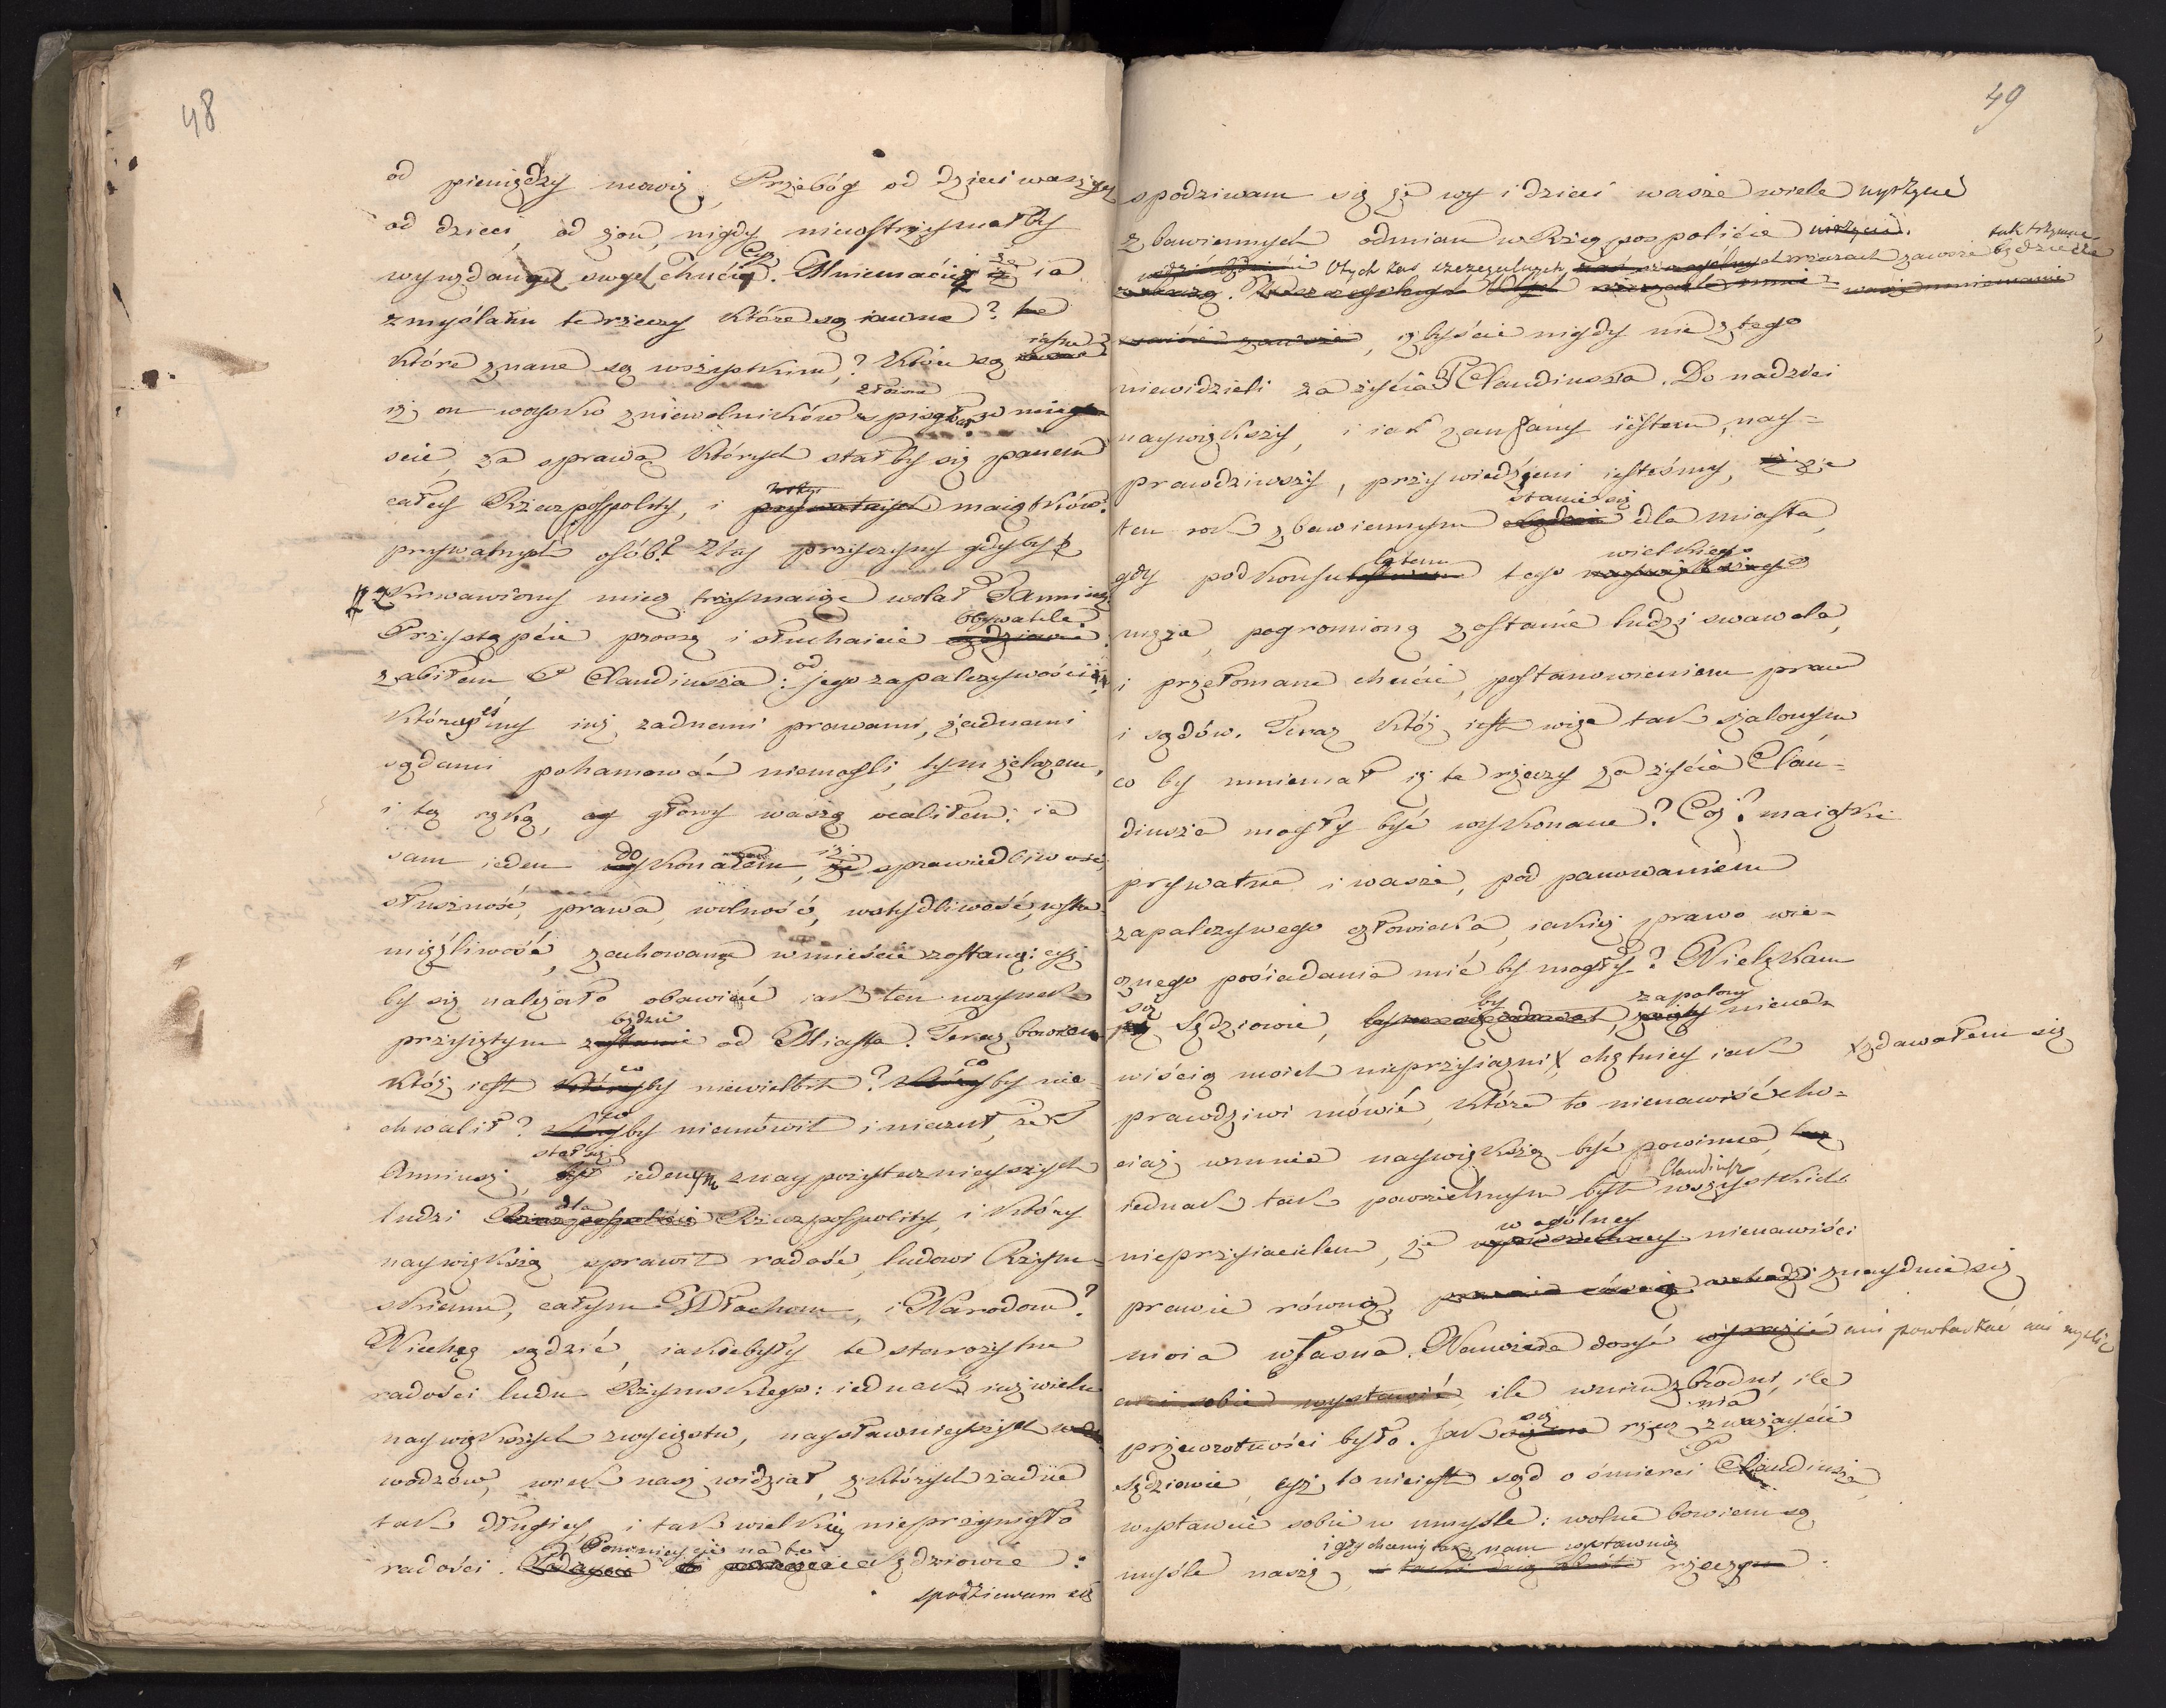 48
od pieniędzy mowię, Przebóg od dzieci waszych
od dzieci, od żon, nigdy niewstrzymałby
wyuzdanych swych chuci. Czyż Mniemacie że ia
zmyślam te rzeczy które są iawne? te
które znane są wszystkim? które są iasne?
iż on woysko zniewolników złożone spisywał w mie
scie, za sprawą których stałby się panem
całey Rzeczpospolity, i prywatnych maiątków?
prywatnych osób? Ztey przyczyny gdyby
zkrwawiony miecz trzymaiąc wołał T. Anniusz
Przystąpcie proszę i słuchaicie obywatele
zabiłem P. Claudiusza: od jego zapalczywości
któreyeśmy iuż żadnemi prawami, żadnemi
sądami pohamować niemogli, tym żelazem,
i tą ręką, głowy waszę ocaliłem: ia
sam ieden dokonałem, iż sprawiedliwość,
słuszność, prawa, wolność, wstydliwość, wstrze
mięźliwość, zachowane wmieście zostaną: czyż
by się należało obawiać iak ten uczynek
przyiętym będzie od Miasta. Teraz bowiem
któż iest coby niewielbił? coby nie
chwalił? coby niemówił i nieczuł, że T
Anniusz, stał się iednym znaypożyteczniejszych
ludzi dla Rzeczpospolity, i który
naywiększą sprawił radość, ludowi Rzym-
skiemu, całym Włochom, i Narodom?
Niechcę sądzić, iakiebyły te starożytne
radości ludu Rzymskiego: iednak iuż wiele
naywiększych zwycięstw, naysławnieyszych
wodzów, wiek nasz widział, zktórych żadne
tak długiey i tak wielkiey nieprzyniosło
radości. Pomniycie na to Sędziowie:
spodziewam się
49
spodziwam się że wy i dzieci wasze wiele użyiecie
zbawiennych odmian w Rzeczpospolicie
Wtych zas szczegulnych rzeczach zawsze tak trzymać będziecie
iżbyście nigdy nic ztego
niewidzieli za życia P Claudiusza. Do nadziei
naywiększey, i iak zaufany iestem, nay-
prawdziwszey, przywiedzeni iesteśmy, że
ten rok zbawiennym stanie się dla miasta,
gdy podkonsulatem tego wielkiego
męża, pogromioną zostanie ludzi swawola,
i przełomane chucie, postanowieniem praw
i sądów. Teraz któż iest więc tak szalonym
co by mniemał iż te rzeczy za życia Clau-
diusza mogły być wykonane? Coż? maiątki
prywatne i wasze, pod panowaniem
zapalczywego człowieka, iakież prawo wie-
cznego posiadania mieć by mogły? Nielękam
się Sędziowie, by zapalony niena-
wiścią moich nieprzyiaźni, chętniey iak X zdawałem się
prawdziwi mówić, które to nienawiść cho-
ciaż wemnie naywiększą być powinna,
iednak tak powszechnym był Claudiusz wszystkich
nieprzyiacielem, że w ogólney nienawiści
prawie równą, znayduie się
moia własna. Nawżda dosyć ani powtarzać ani myślić
ile wnim zbrodni, ile
przewrotności było. Jak się ma rzecz zważaycie
Sędziowie, czyż to nieiest sąd o śmierci P Claudiusza,
wystawcie sobie w umyśle: wolne bowiem są
myśle nasze, i gdy chcemy tak nam wystawuią rzeczy